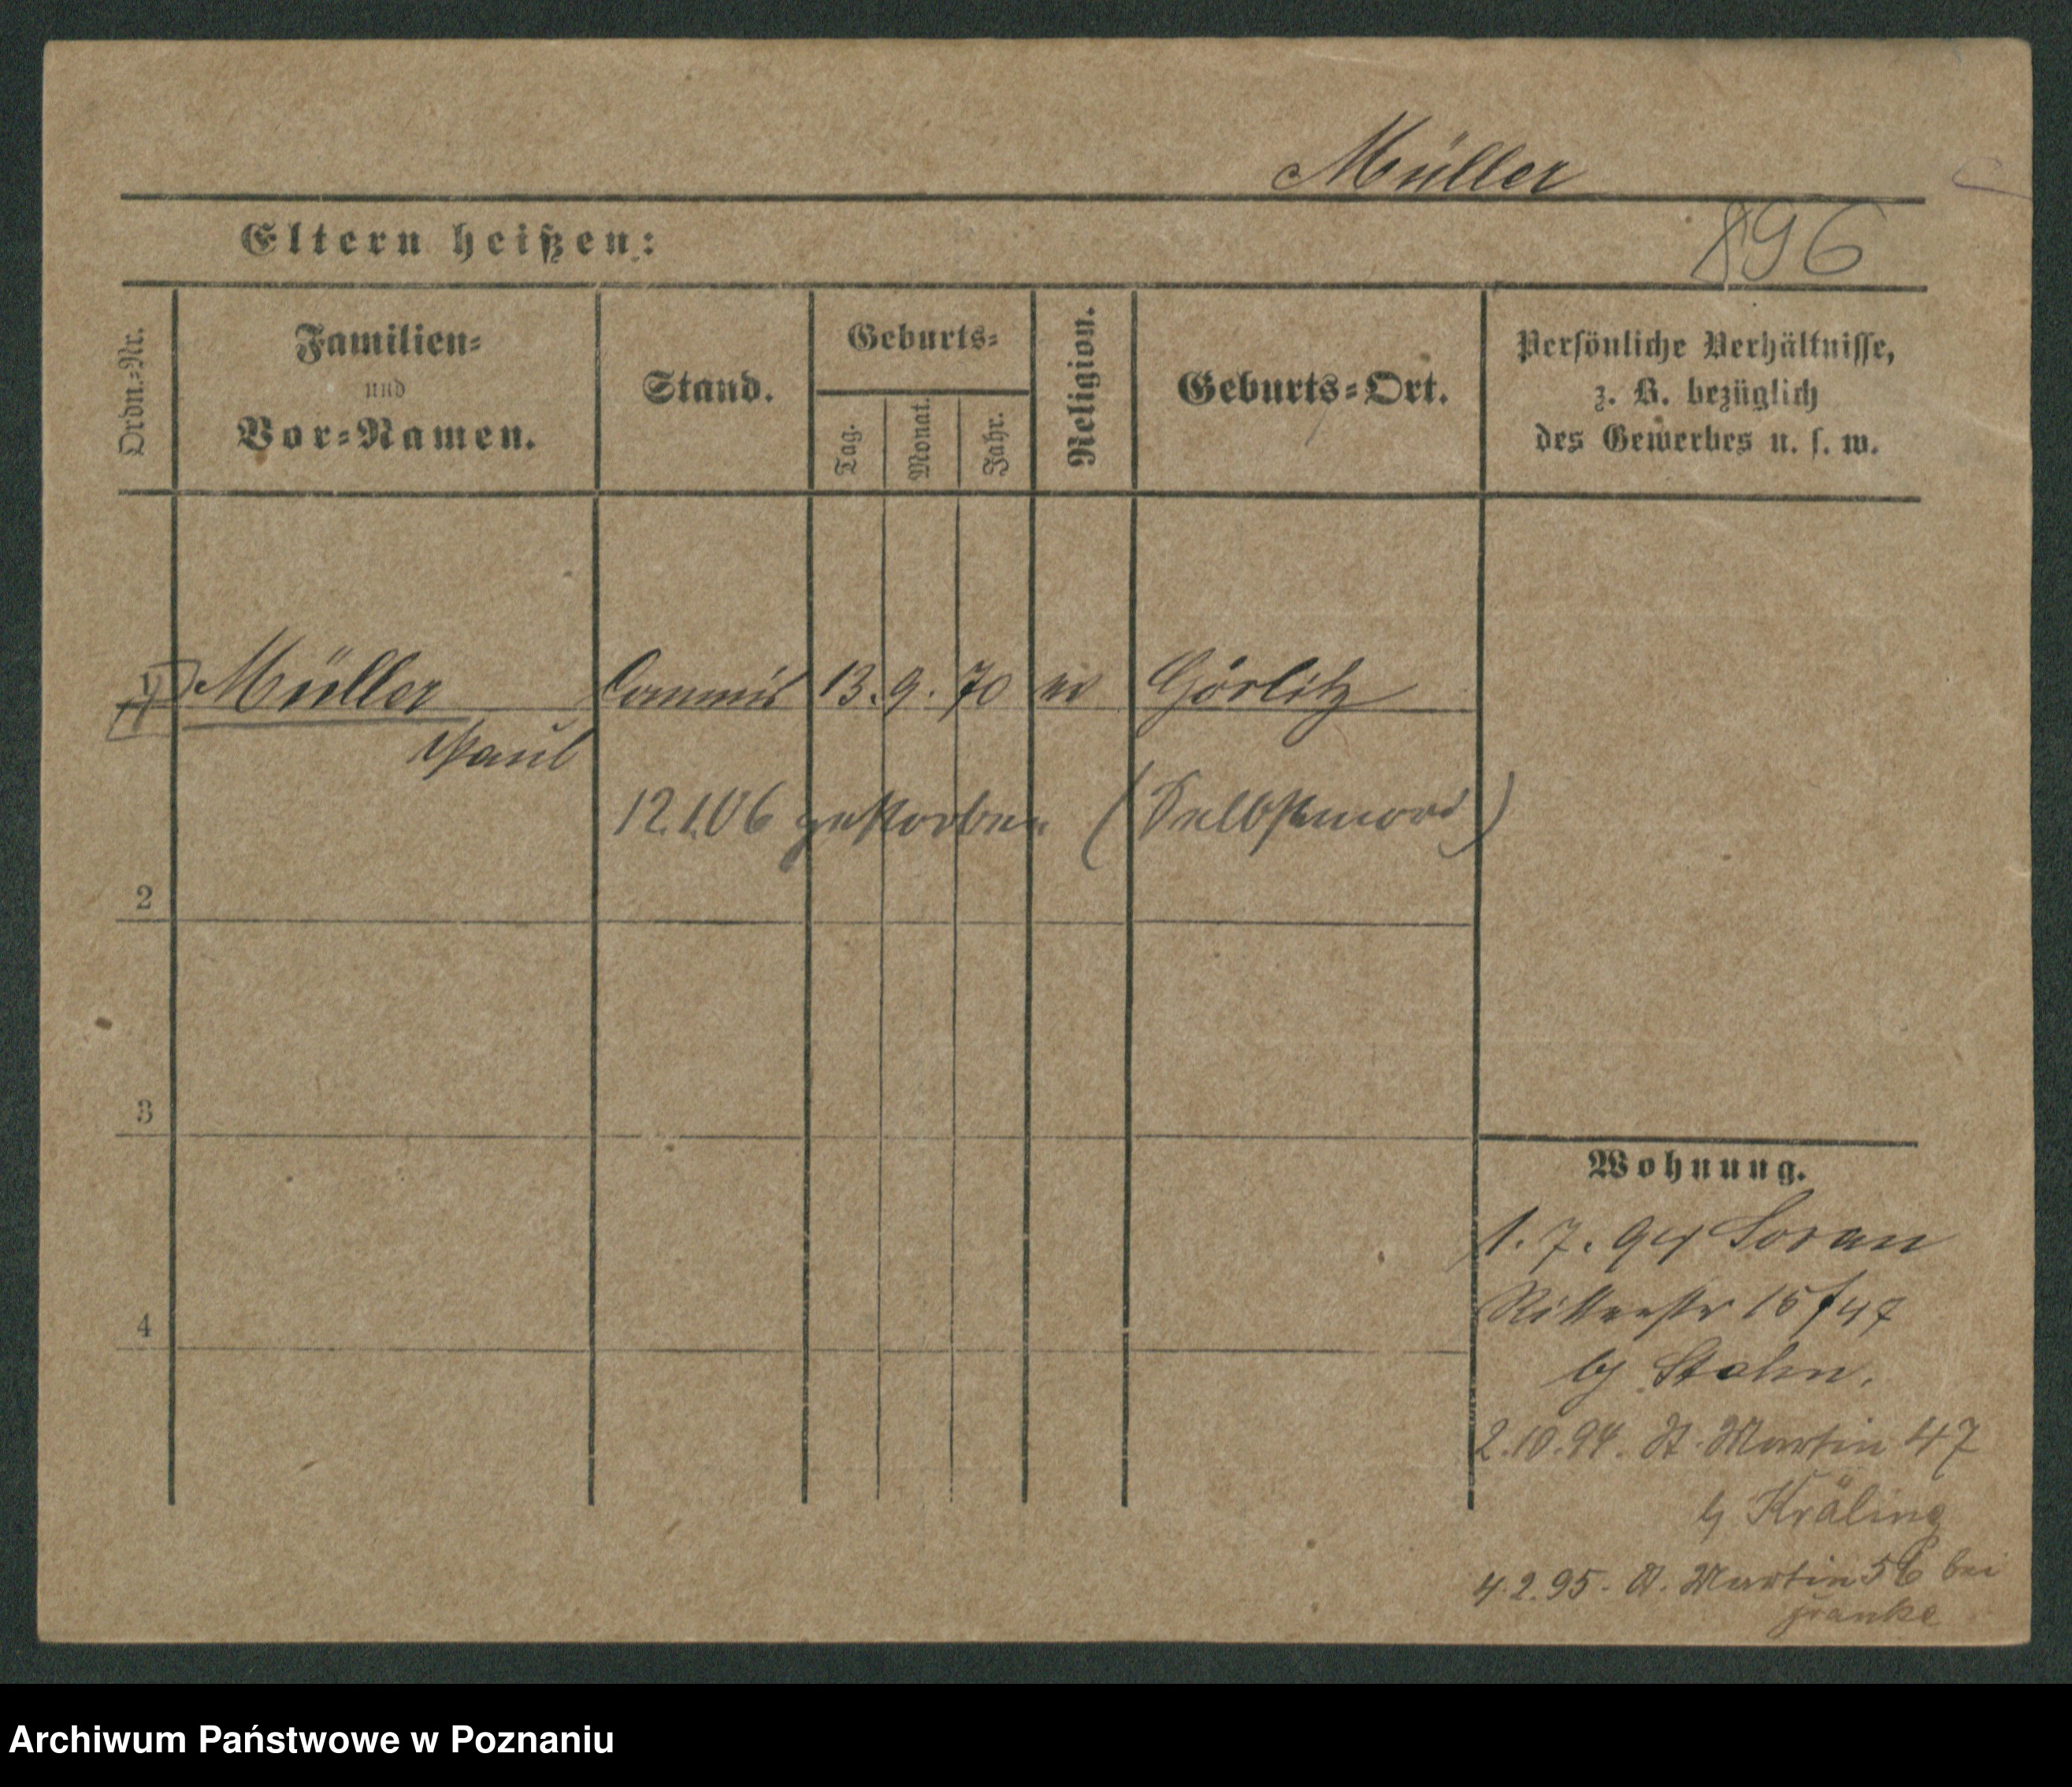 Müller
Eltern heißen:
896
Ordn.-Nr.
Familien-
und
Vor-Namen.
Stand.
Geburts-
Tag.
Monat.
Jahr.
Religion.
Geburts-Ort.
Persönliche Verhältnisse,
z. B. bezüglich
des Gewerbes u. s. w.
1 Müller Commis 13. 9. 70 ev Görlitz
Paul
12.1.06 gestorben (Selbstmord)
2
3
4
Wohnung.
1. 7. 94 Sorau
Ritterstr 15
b/ Stahn.
2.10.94. St. Martin 47
b/ Kräling
4.2.95. St. Martin 56 bei
Franke
Archiwum Państwowe w Poznaniu